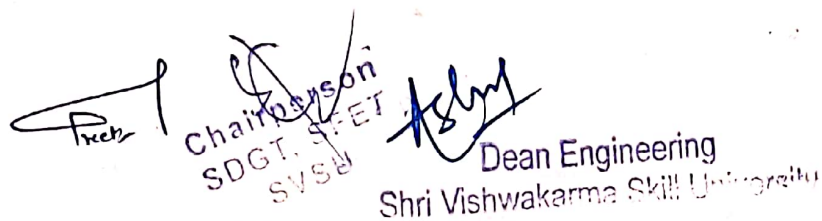 Preeti
Chairperson
SDGT, SFET
SVSU
Dean Engineering
Shri Vishwakarma Skill University